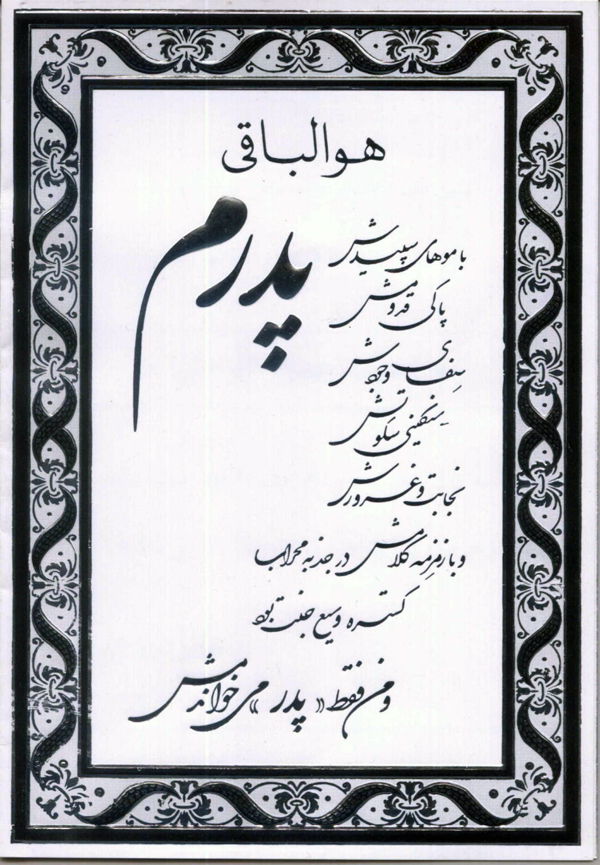 هوالباقی
پدرم
با موهای سپیدش
پاکی قدومش
صفای وجودش
سنگینی سکوتش
نجابت و غرورش
و با زمزمه کلامش در جذبه محراب
گستره وسیع جنت بود
و من فقط «پدر» می خواندمش